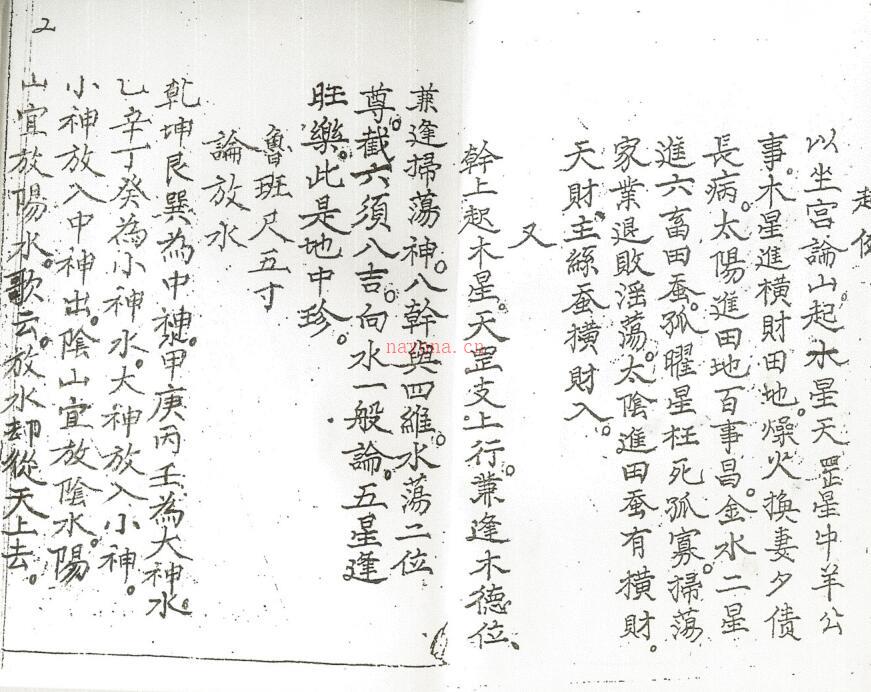 起例
以坐宫論山起水星天罡星中羊公
事。木星進横財田地。燥火換妻夕債
長病。太陽進田地百事昌。金水二星
進六畜田蚕。孤曜星枉死孤寡。掃荡
家業退敗淫荡。太陰進田蚕有横財。
天財主絲蚕横財入。
又
幹上起木星。天罡支上行。兼逢木德位、
兼逢掃荡神。八幹與四維。水荡二位
尊。截六須八吉。向水一般論。五星逢
旺樂。此是地中珍。
魯班尺五寸
論放水
乾坤艮巽為中神。甲庚丙壬為大神水。
乙辛丁癸為小神水。大神放入小神。
小神放入中神出。陰山宜放陰水。陽
山宜放陽水。歌云。放水却從天上去。
2
nayona.cn